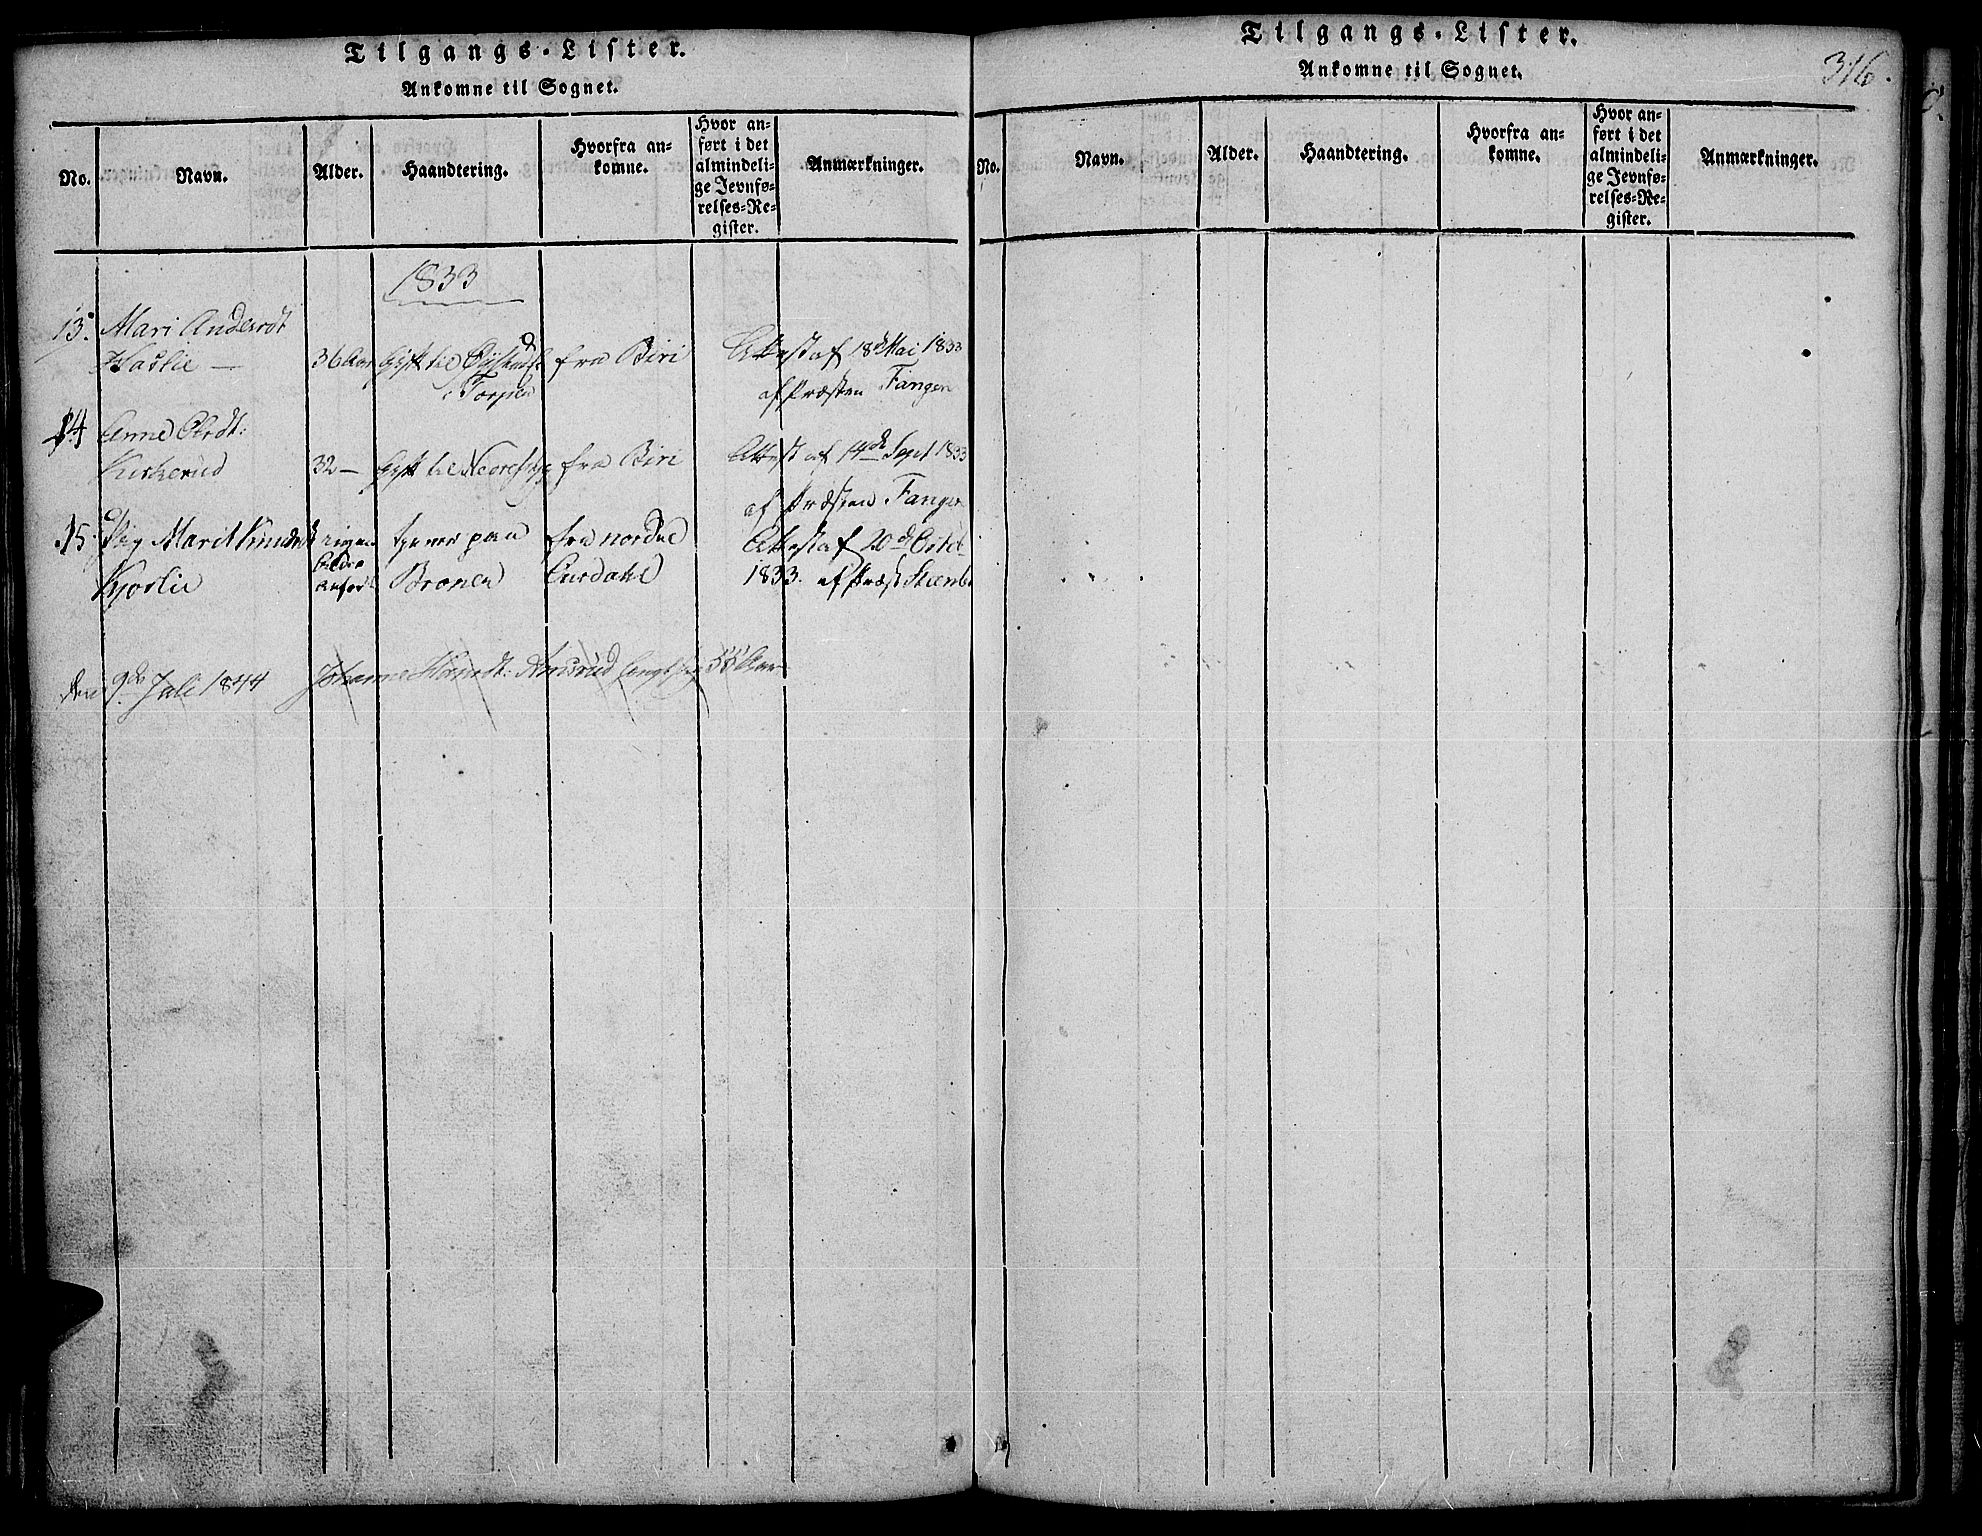 Tilgangs-Lister.
Ankomne til Sognet.
No.
Navn.
Alder.
Haandtering.
Hvorfra an-
komne.
Hvor an-
ført i det
almindeli-
ge Jevnfø-
relses-Re-
gister.
Anmærkninger.
1833
13. Mari Andersdt
Haslie — 36 Aar gift til fra Biri Attest af 18de Mai 1833
Torpen af Præsten Fangen
14
Kirkerud 32 — gift til fra Biri Attest af 14de Sept 1833
af Præsten Fangen
15. Pig Marit tjener paa fra nordre Attest af 20de Octob
Kjorlie Aurdahl 1833. af Præst
den 9de Juli 1844 Johanne 55 Aar
Tilgangs-Lister.
Ankomne til Sognet.
316.
No.
Navn.
Alder.
Haandtering.
Hvorfra an-
komne.
Hvor an-
ført i det
almindeli-
ge Jevnfø-
relses-Re-
gister.
Anmærkninger.